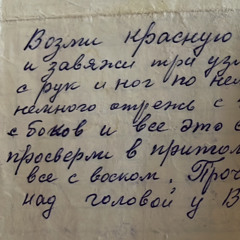 Возьми красную
и завяжи три узл
с рук и ног по нем
немного отрежь с
с боков и все это с
просверли в притол
все с воском. Проч
над головой у В